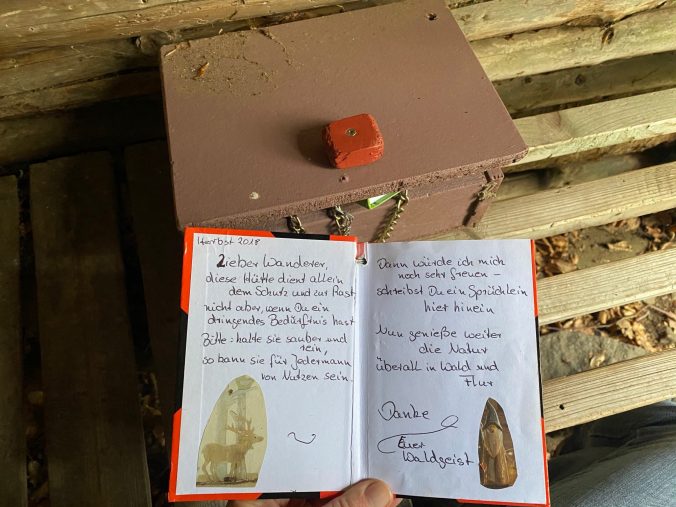 Herbst 2018
Lieber Wanderer,
diese Hütte dient allein
dem Schutz und zur Rast,
nicht aber, wenn Du ein
dringendes Bedürfnis hast
Bitte: halte sie sauber und
rein,
so kann sie für Jedermann
von Nutzen sein.
Dann würde ich mich
noch sehr freuen –
schreibst Du ein Sprüchlein
hier hinein
Nun genieße weiter
die Natur
überall in Wald und
Flur
Danke
Euer
Waldgeist